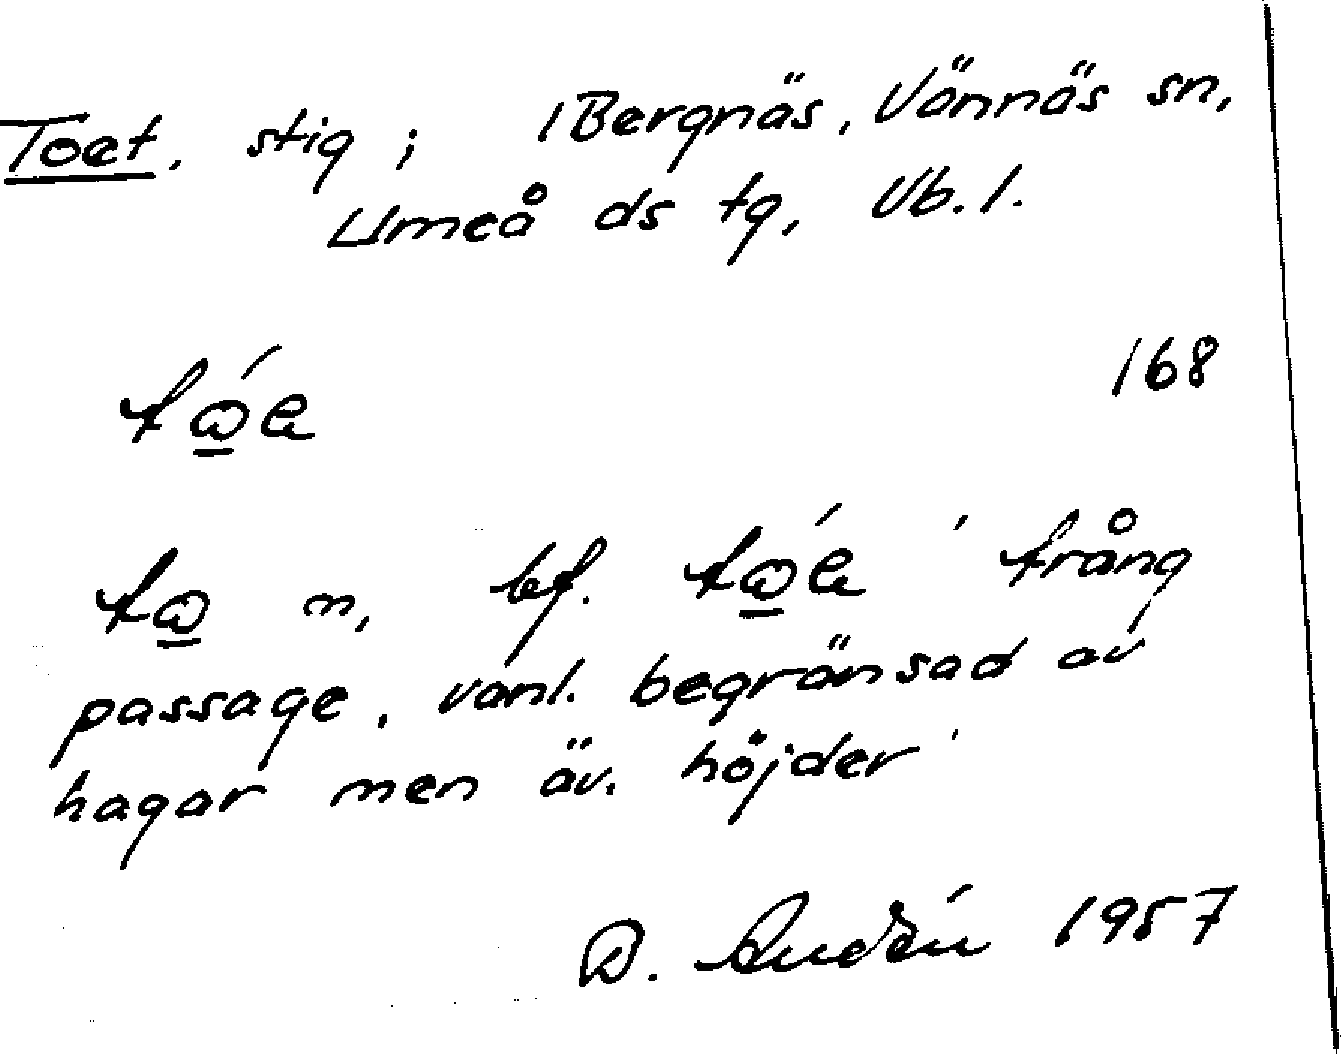 Toet, stig; i Bergnäs, Vännäs sn,
Umeå ds tg, Vb. l.
168
n, bf. 'trång
passage, vanl. begränsad av
hagar men äv. höjder'
D. 1957